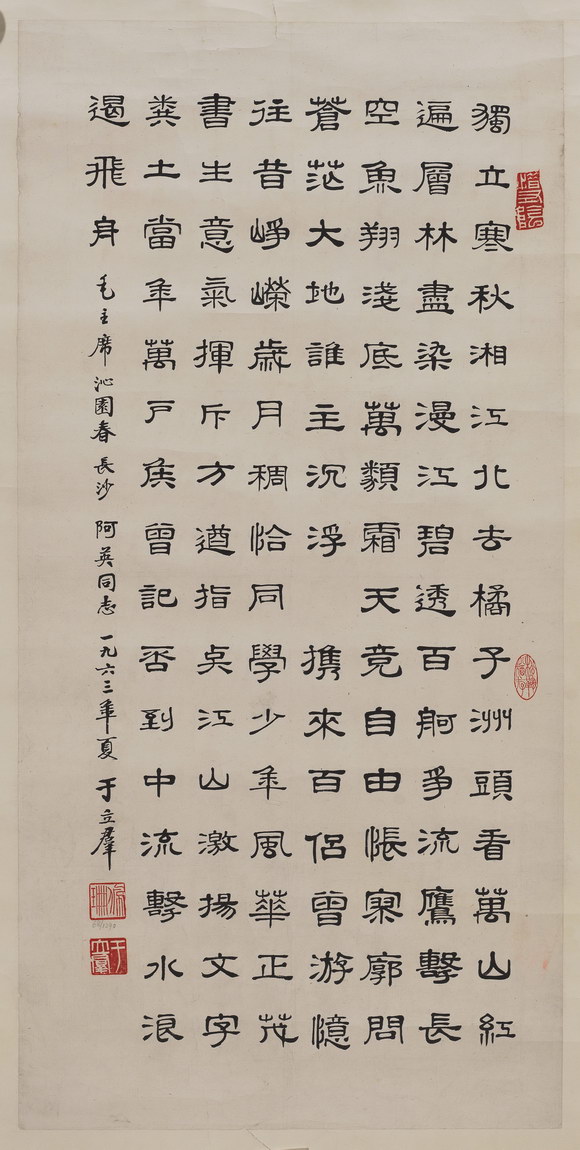 獨立寒秋湘江北去橘子洲頭看萬山紅
遍層林盡染漫江碧透百舸爭流鷹擊長
空魚翔淺底萬類霜天竞自由悵寥廓問
蒼茫大地誰主沉浮 携來百侣曾游憶
往昔崢嶸歲月稠恰同學少年風華正茂
書生意氣揮斥方遒指点江山激揚文字
糞土當年萬户侯曾記否到中流擊水浪
遏飛舟 毛主席沁園春長沙 阿英同志 一九六三年夏 于立羣
于立羣